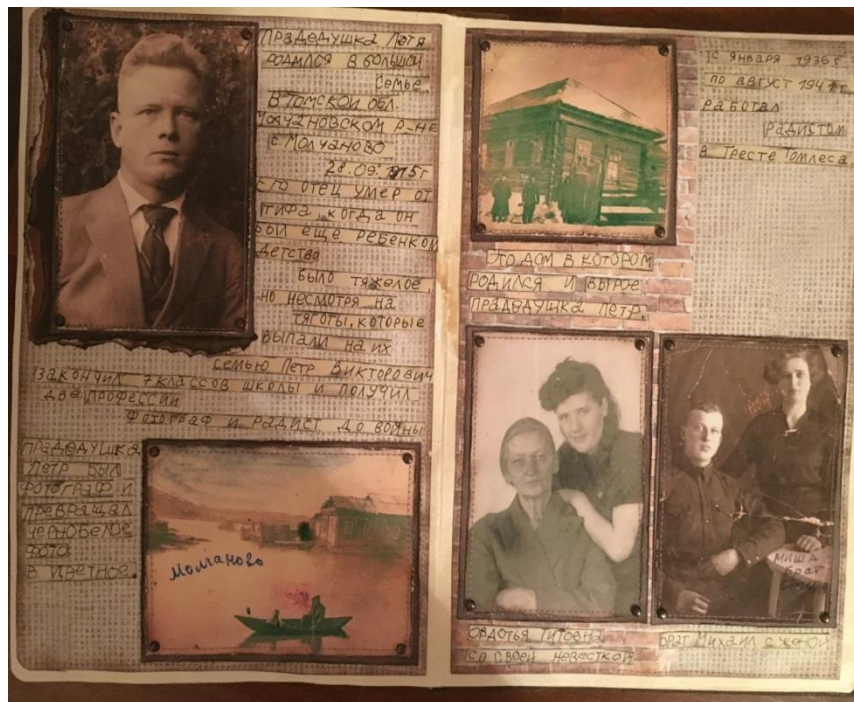 Прадедушка Петя
родился в большой
семье
в Томской обл.
Молчановском р-не
с. Молчаново
28.09.1915г
его отец умер от
тифа, когда он
был еще ребенком
Детство
было тяжелое,
но несмотря на
тяготы, которые
выпали на их
семью Петр Викторович
закончил 7 классов школы и получил
две профессии
фотограф и радист до войны
прадедушка
Петр был
фотограф и
превращал
чернобелое
фото
в цветное.
Молчаново
Это дом в котором
родился и вырос
прадедушка Петр.
с января 1936г
по август 1941г.
работал
радистом
в Тресте Томлеса.
со своей невесткой
Миша
брат
Брат Михаил с женой